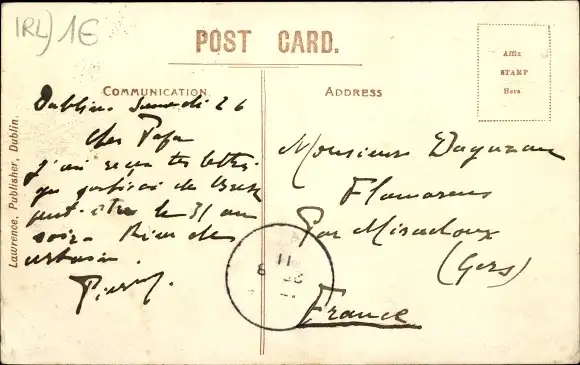 IRL) 1€
POST CARD.
Affix
STAMP
Here
COMMUNICATION.
ADDRESS
Lawrence, Publisher, Dublin.
Dublin. Samedi 26
Cher Papa
J'ai reçu ta lettre
que
peut-être le 31 au
soir. Rien de
Pierre.
Monsieur
Flamarens
Par Miradoux
(Gers)
France
11